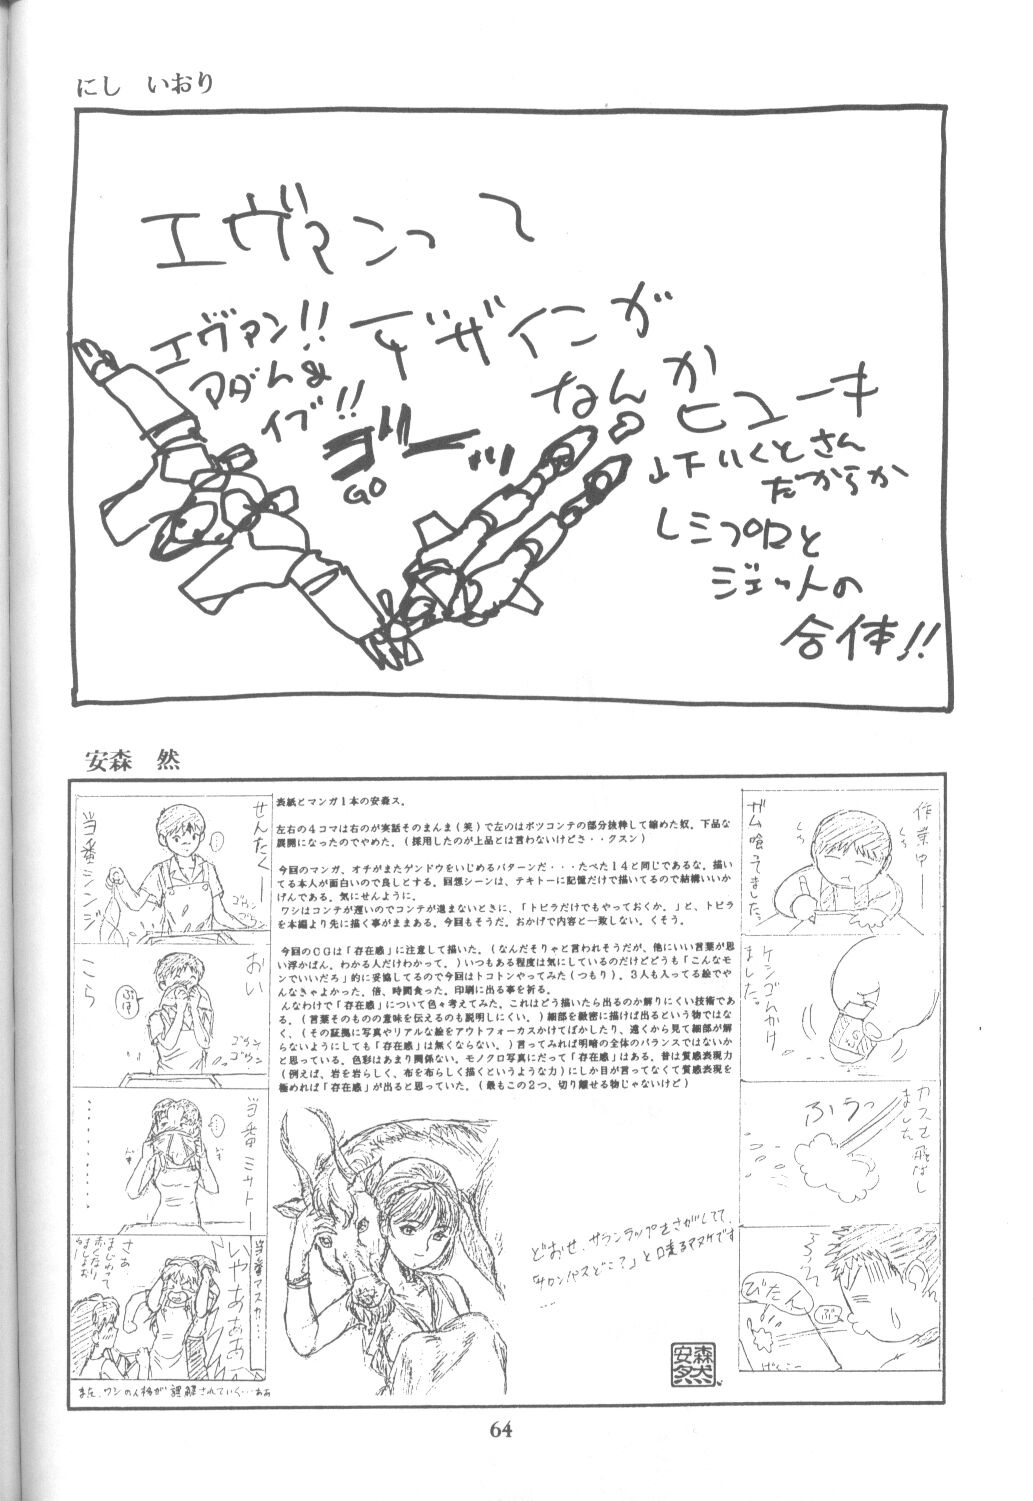 にし　いおり
エヴァンって
デザインが
なんか
ヒューキ
エヴァン!!
アダム&
イブ!!
ゴーッ
GO
山下いくとさん
だからか
レシプロと
ジェットの
合体!!
安森　然
表紙とマンガ1本の安森ス。
左右の4コマは右のが実話そのまんま(笑)で左のはボツコンテの部分抜粋して縮めた奴。下品な
展開になったのでやめた。(採用したのが上品とは言わないけどさ・・クスン)
今回のマンガ、オチがまたゲンドウをいじめるパターンだ・・・たべた14と同じであるな。描い
てる本人が面白いので良しとする。回想シーンは、テキトーに記憶だけで描いてるので結構いいか
げんである。気にせんように。
ワシはコンテが遅いのでコンテが進まないときに、「トビラだけでもやっておくか。」と、トビラ
を本編より先に描く事がままある。今回もそうだ。おかげで内容と一致しない。くそう。
今回のCGは「存在感」に注意して描いた。(なんだそりゃと言われそうだが、他にいい言葉が思
い浮かばん。わかる人だけわかって。)いつもある程度は気にしているのだけどどうも「こんなモ
ンでいいだろ」的に妥協してるので今回はトコトンやってみた(つもり)。3人も入ってる絵でや
んなきゃよかった。倍、時間食った。印刷に出る事を祈る。
んなわけで「存在感」について色々考えてみた。これはどう描いたら出るのか解りにくい技術であ
る。(言葉そのものの意味を伝えるのも説明しにくい。)細部を緻密に描けば出るという物ではな
く、(その証拠に写真やリアルな絵をアウトフォーカスかけてぼかしたり、遠くから見て細部が解
らないようにしても「存在感」は無くならない。)言ってみれば明暗の全体のバランスではないか
と思っている。色彩はあまり関係ない。モノクロ写真にだって「存在感」はある。昔は質感表現力
(例えば、岩を岩らしく、布を布らしく描くというような力)にしか目が言ってなくて質感表現を
極めれば「存在感」が出ると思っていた。(最もこの2つ、切り離せる物じゃないけど)
作業中―
ガム喰ってました。
ケシゴムかけ
ました。
カスを飛ばし
ました
ふうっ
ぷっ
びたん
げんこー
せんたくー
当番シンジ
ゴウン
ゴウン
おい
こら
ゴウン
ゴウン
当番ミサト―
・・・・・・・・
当番アスカ…
いやぁぁぁ
さぁ
まじわって
赤くなり
ましょお
また、ワシの人格が誤解されていく…ああ
どおせ、サランラップをさがしてて、
「サロンパスどこ?」と口走るマヌケです
…
安森
然
64